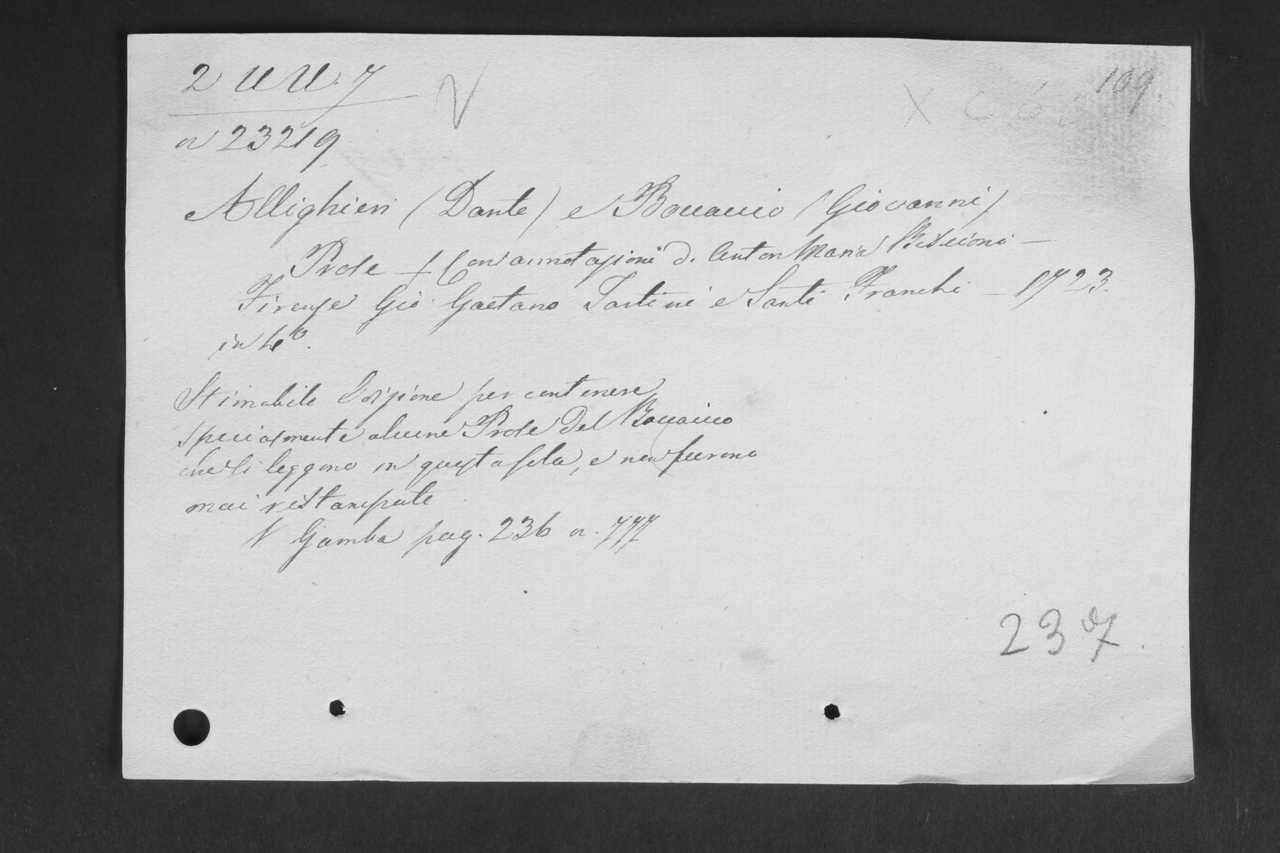 2 UU. 7
n 23219
109.
Allighieri (Dante) e Boccaccio (Giovanni)
Prose — Con annotazioni di Anton Maria Biscioni —
Firenze Gio. Gaetano Tartini e Santi Franchi — 1723.
in 4º.
Stimabile Edizione per contenere
specialmente alcune Prose del Boccaccio
che si leggono in questa sola, e non furono
mai ristampate
V Gamba pag. 236 n. 777
237.